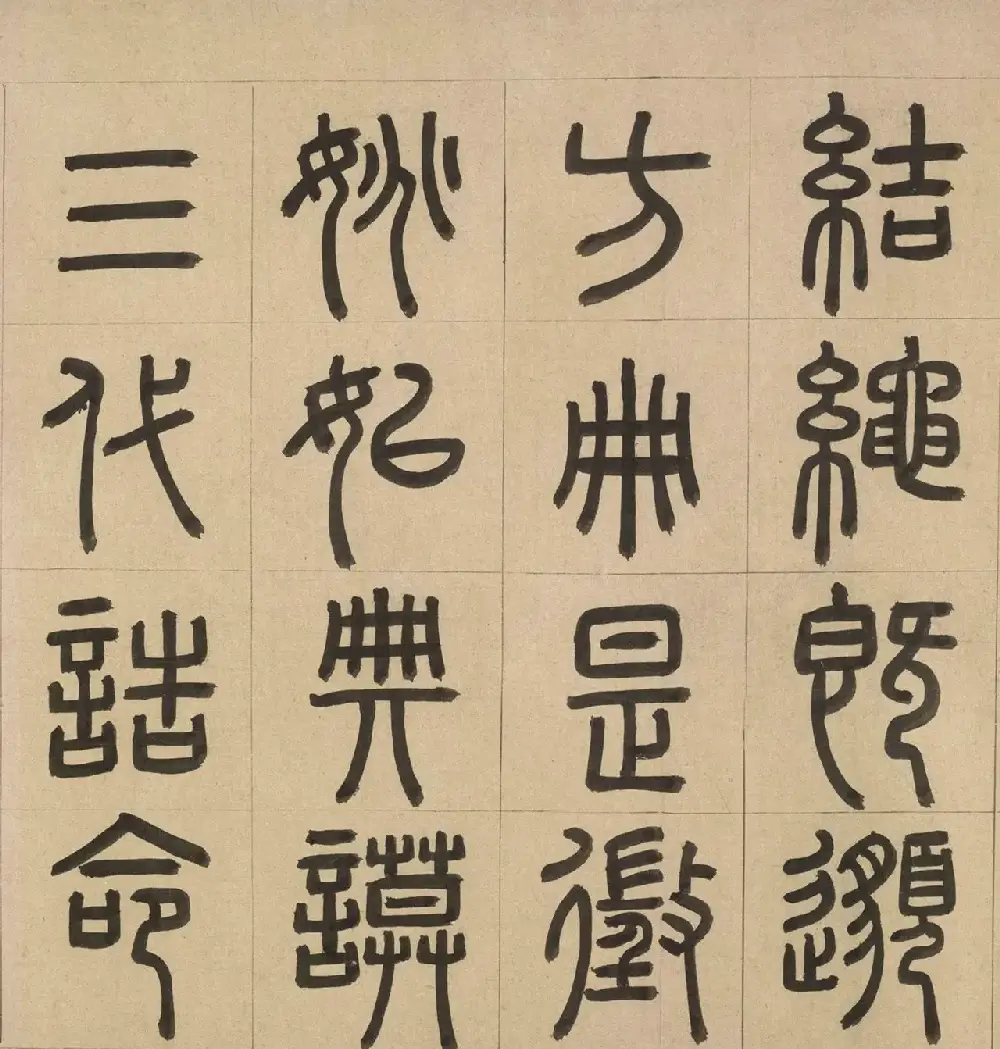 結繩既邈
方冊是徵
姚姒典謨
三代誥命